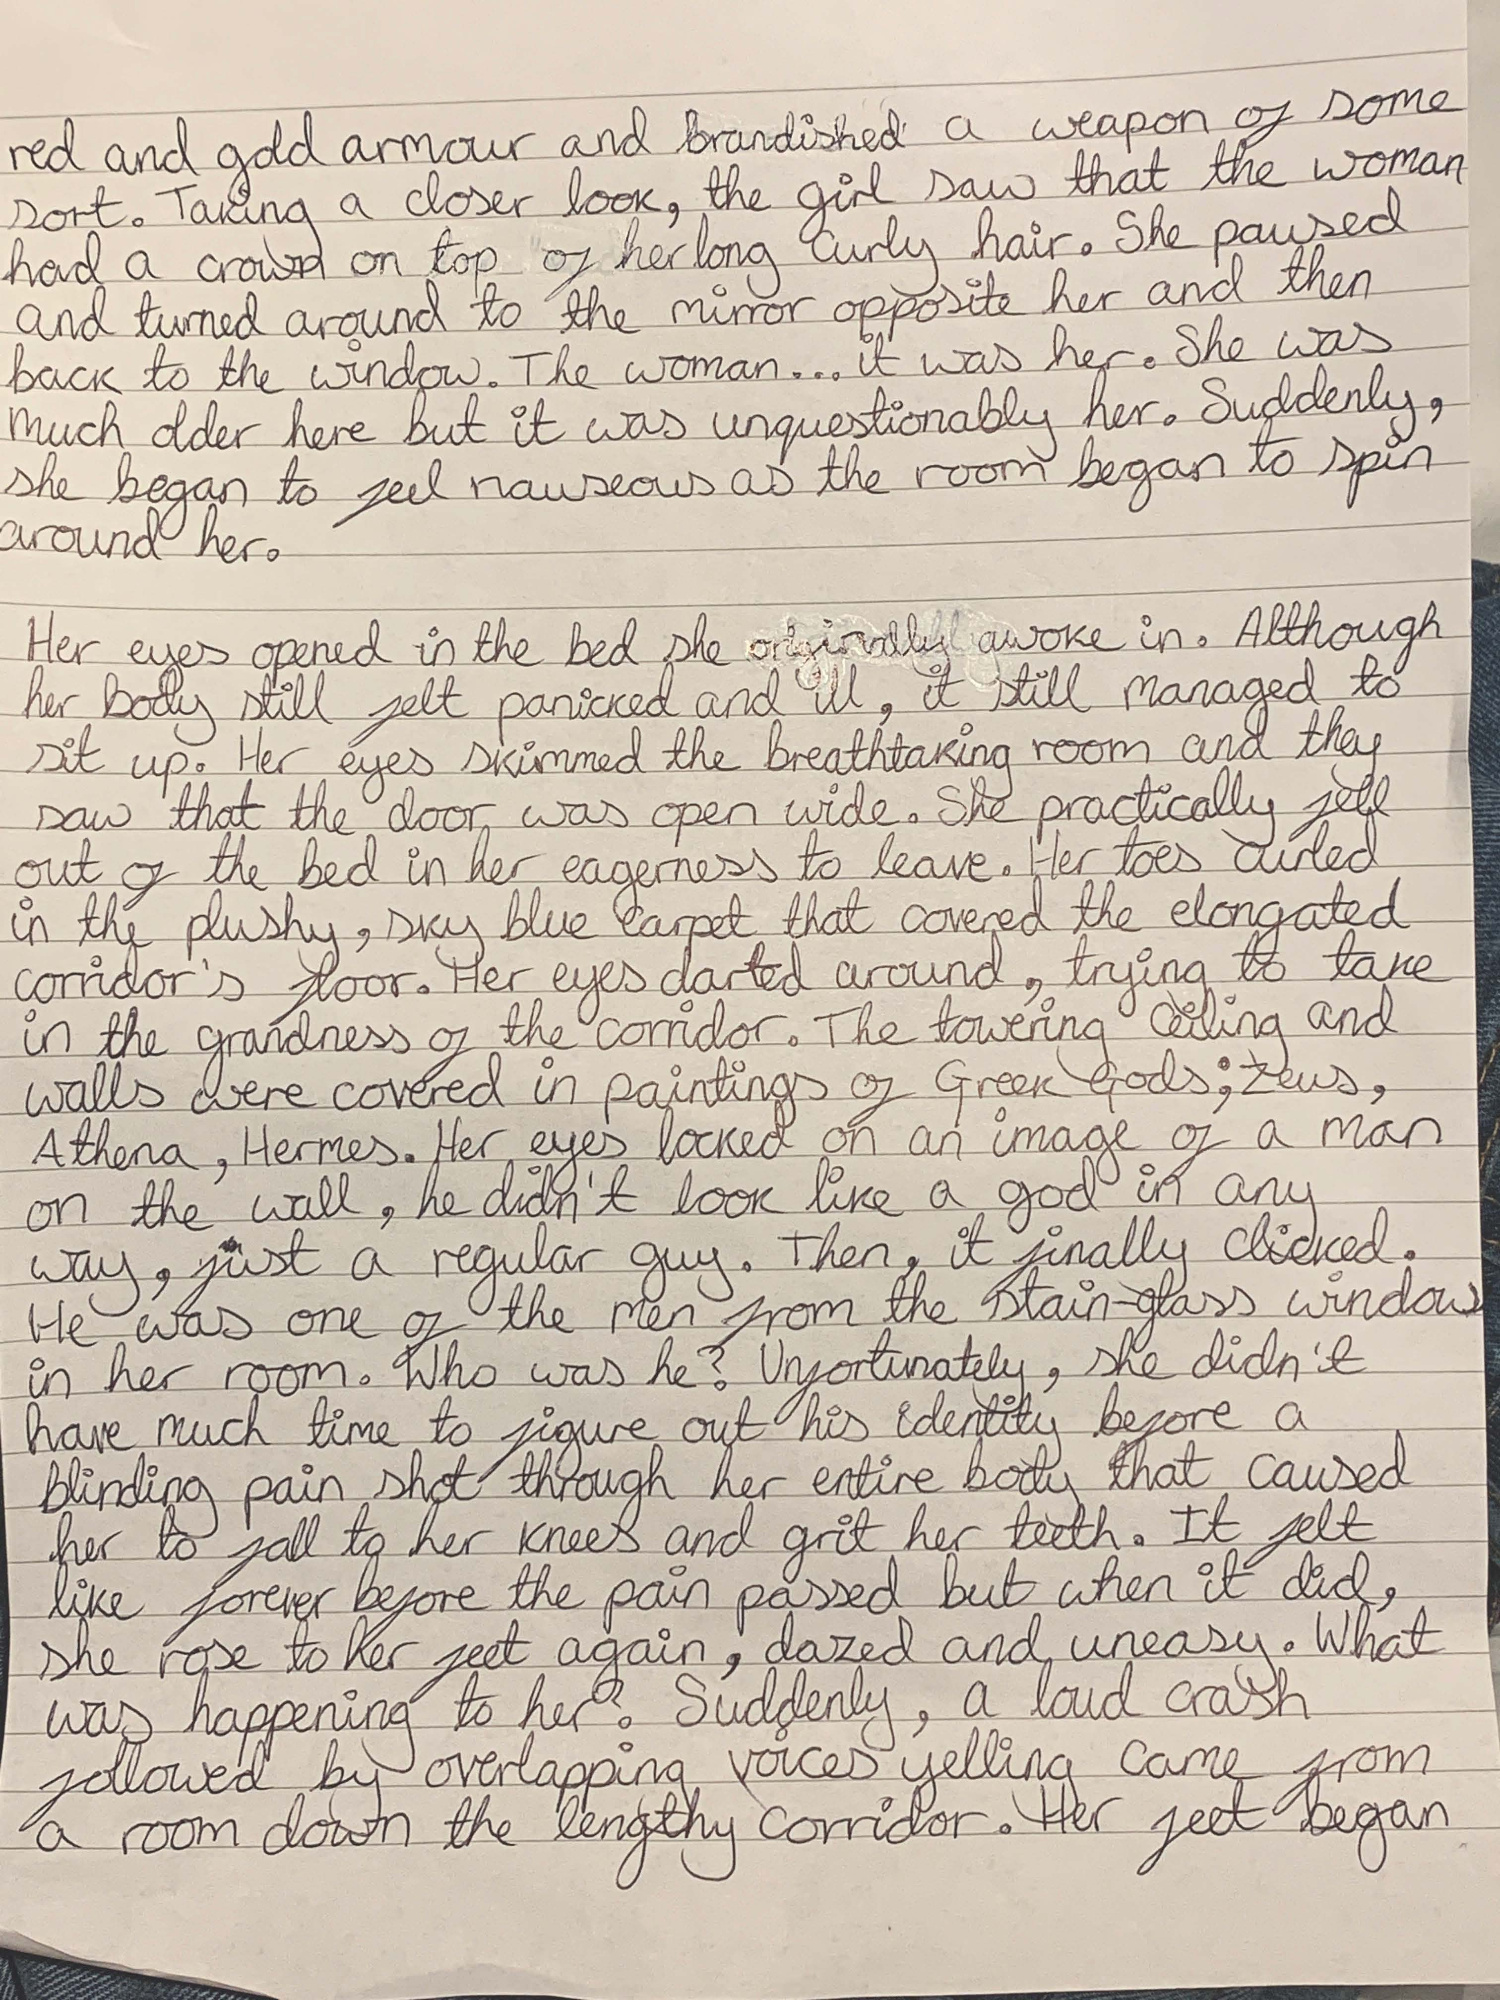 red and gold armour and brandished a weapon of some
sort. Taking a closer look, the girl saw that the woman
had a crown on top of her long curly hair. She paused
and turned around to the mirror opposite her and then
back to the window. The woman... it was her. She was
much older here but it was unquestionably her. Suddenly,
she began to feel nauseous as the room began to spin
around her.
Her eyes opened in the bed she originally awoke in. Although
her body still felt panicked and ill, it still managed to
sit up. Her eyes skimmed the breathtaking room and they
saw that the door was open wide. She practically fell
out of the bed in her eagerness to leave. Her toes curled
in the plushy, sky blue carpet that covered the elongated
corridor's floor. Her eyes darted around, trying to take
in the grandness of the corridor. The towering ceiling and
walls were covered in paintings of Greek Gods; Zeus,
Athena, Hermes. Her eyes locked on an image of a man
on the wall, he didn't look like a god in any
way, just a regular guy. Then, it finally clicked.
He was one of the men from the stain-glass window
in her room. Who was he? Unfortunately, she didn't
have much time to figure out his identity before a
blinding pain shot through her entire body that caused
her to fall to her knees and grit her teeth. It felt
like forever before the pain passed but when it did,
she rose to her feet again, dazed and uneasy. What
was happening to her? Suddenly, a loud crash
followed by overlapping voices yelling came from
a room down the lengthy corridor. Her feet began